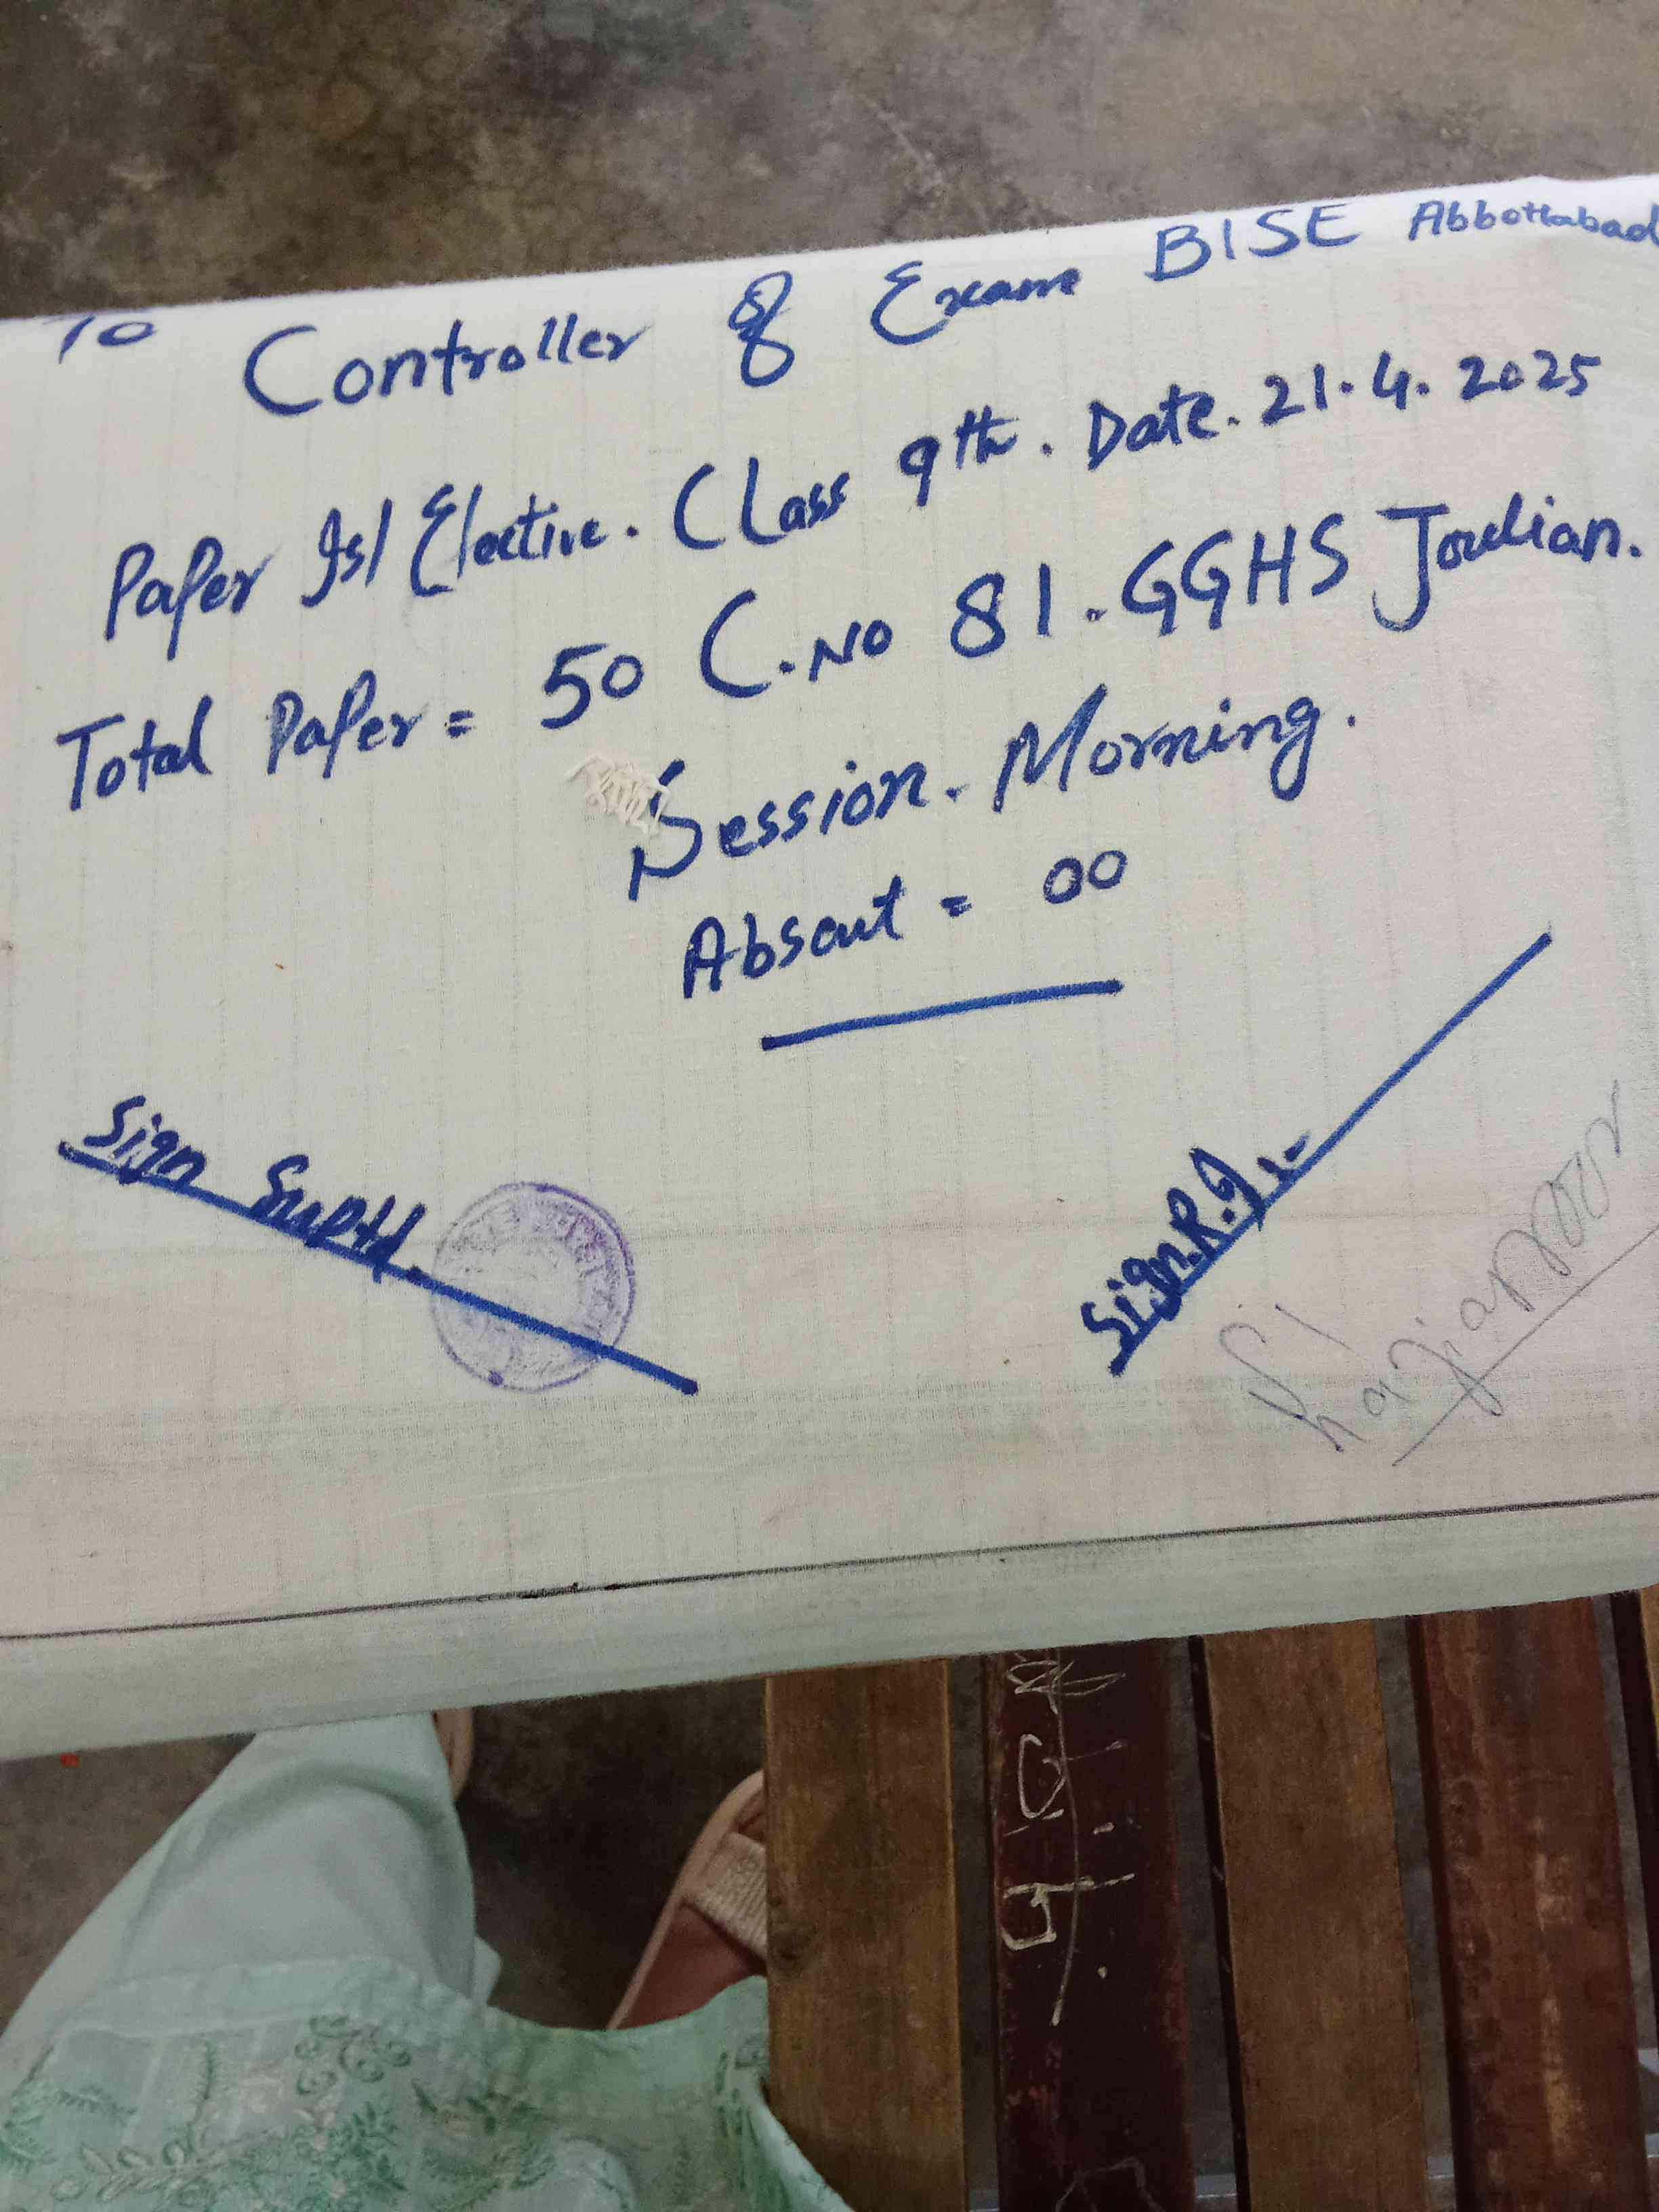 To Controller of Exam BISE Abbottabad
Paper Isl Elective. Class 9th. Date. 21.4.2025
Total Paper = 50 C.No 81. GGHS Joulian.
Session. Morning.
Absent = 00
Sign Suptd.
Sign. R.I